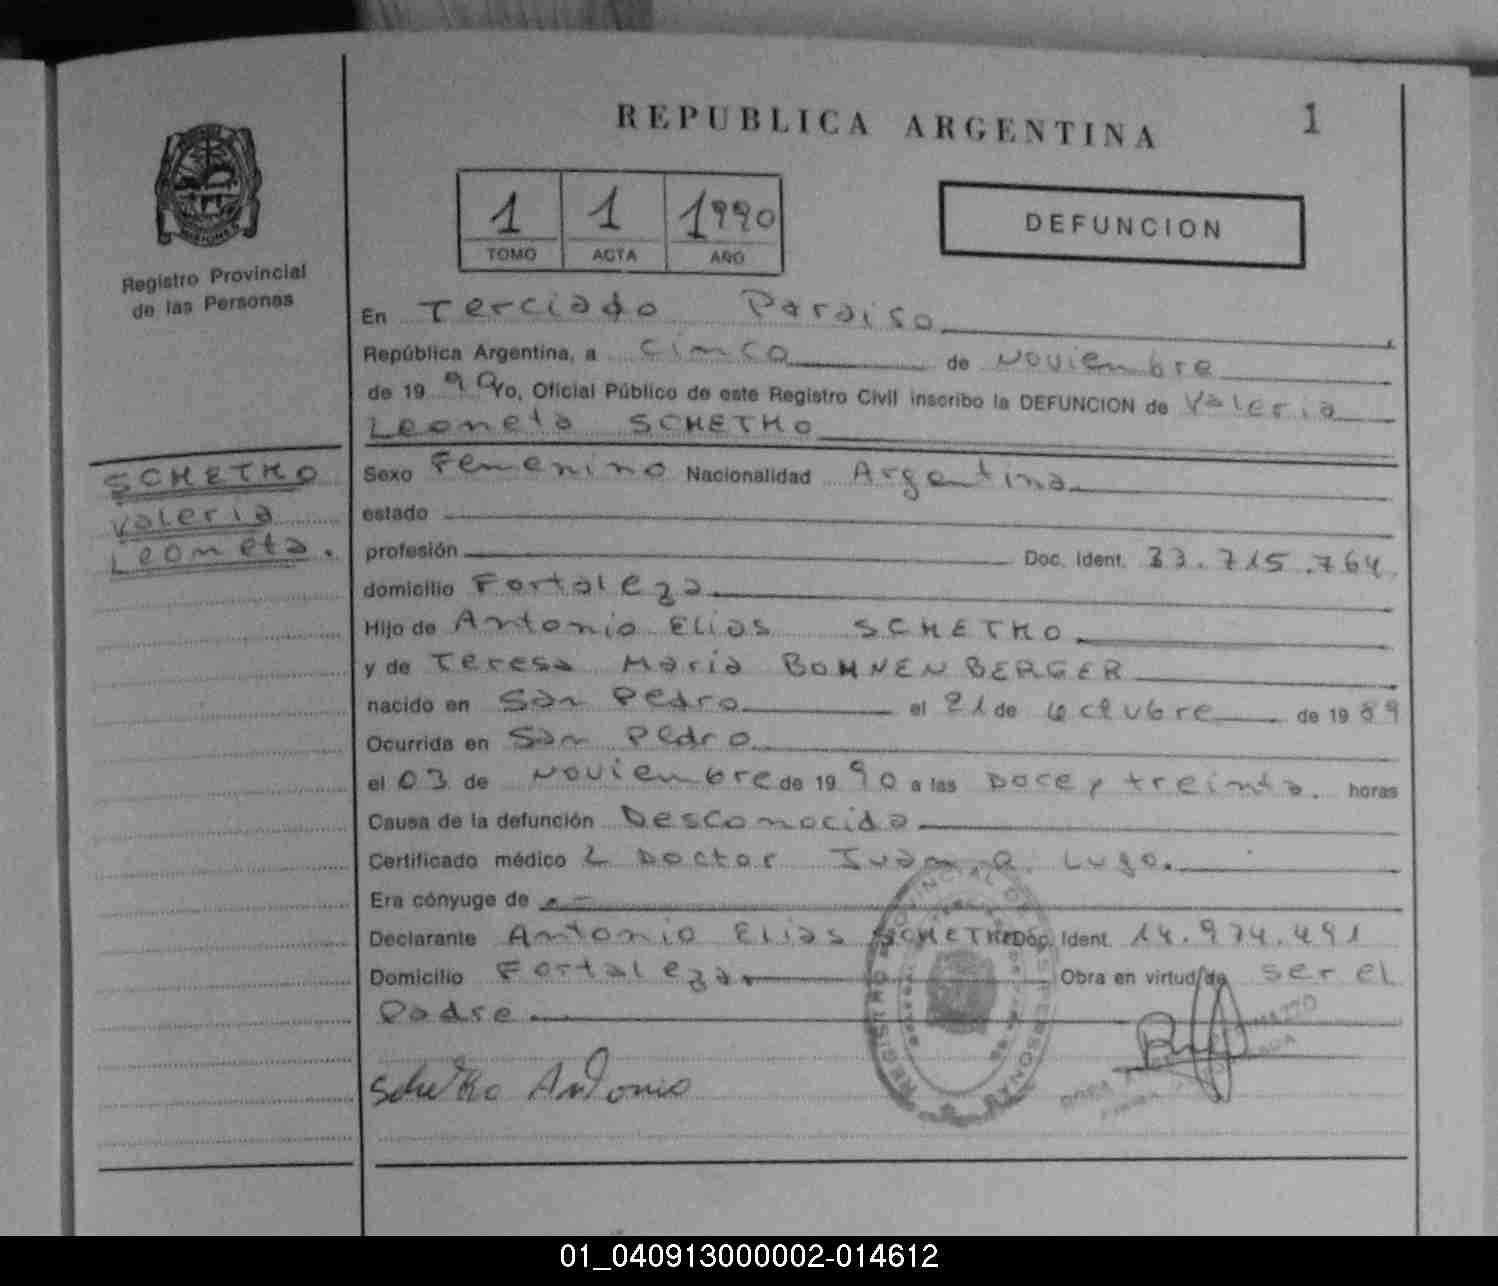 REPUBLICA ARGENTINA
1
MISIONES
Registro Provincial
de las Personas
1 1 1990
TOMO ACTA AÑO
DEFUNCION
En Terciado Paraiso
República Argentina, a Cinco de Noviembre
de 19 90 Yo, Oficial Público de este Registro Civil inscribo la DEFUNCION de Valeria
Leoneta SCHETKO
SCHETKO
Valeria
Leoneta.
Sexo Femenino Nacionalidad Argentina
estado
profesión Doc. Ident. 33.715.764
domicilio Fortaleza
Hijo de Antonio Elias SCHETKO
y de Teresa Maria BOHNENBERGER
nacido en San Pedro el 21 de octubre de 19 89
Ocurrida en San Pedro
el 03 de Noviembre de 19 90 a las Doce y treinta. horas
Causa de la defunción Desconocida
Certificado médico Doctor Juan a. Lugo.
Era cónyuge de
Declarante Antonio Elias SCHETKO Doc. Ident. 14.974.491
Domicilio Fortaleza Obra en virtud de ser el
Padre
Schetko Antonio
REGISTRO PROVINCIAL DE LAS PERSONAS
01_040913000002-014612